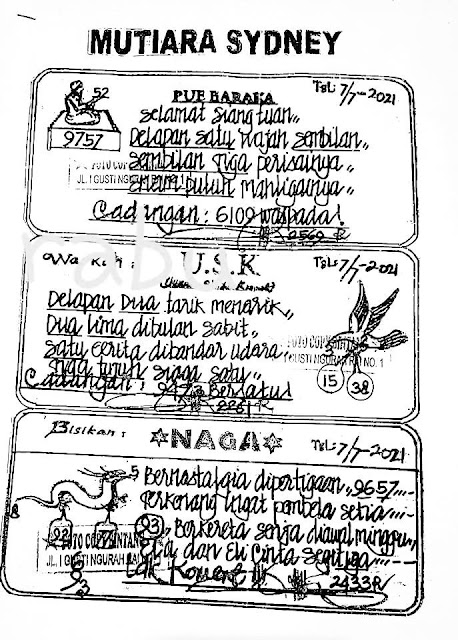 MUTIARA SYDNEY
PUE BARAKA
Tgl: 7/7-2021
52
9757
Selamat siang tuan,,
Delapan satu wajah sembilan,,
Sembilan tiga perisainya,,
Enam puluh mahligainya,,
JL. I GUSTI NGURAH
Cadangan: 6109 waspada!
2569 R
rabu
U.S.K
Tgl: 7/7-2021
Delapan Dua tarik menarik,,
Dua lima dibulan sabit,,
Satu cerita dibandar udara
Tiga tujuh siaga satu,,
I GUSTI NGURAH RAI NO. 1
15
38
Cadangan: Bersatu!
2281 R
Bisikan:
NAGA
Tgl: 7/7-2021
5
8
Bernostalgia dipertigaan,, 9657
Terkenang ingat pembela setia
93, Berkereta senja diawal minggu,,
dan Eli Cinta segitiga
JL. I GUSTI NGURAH RAI
2433 R